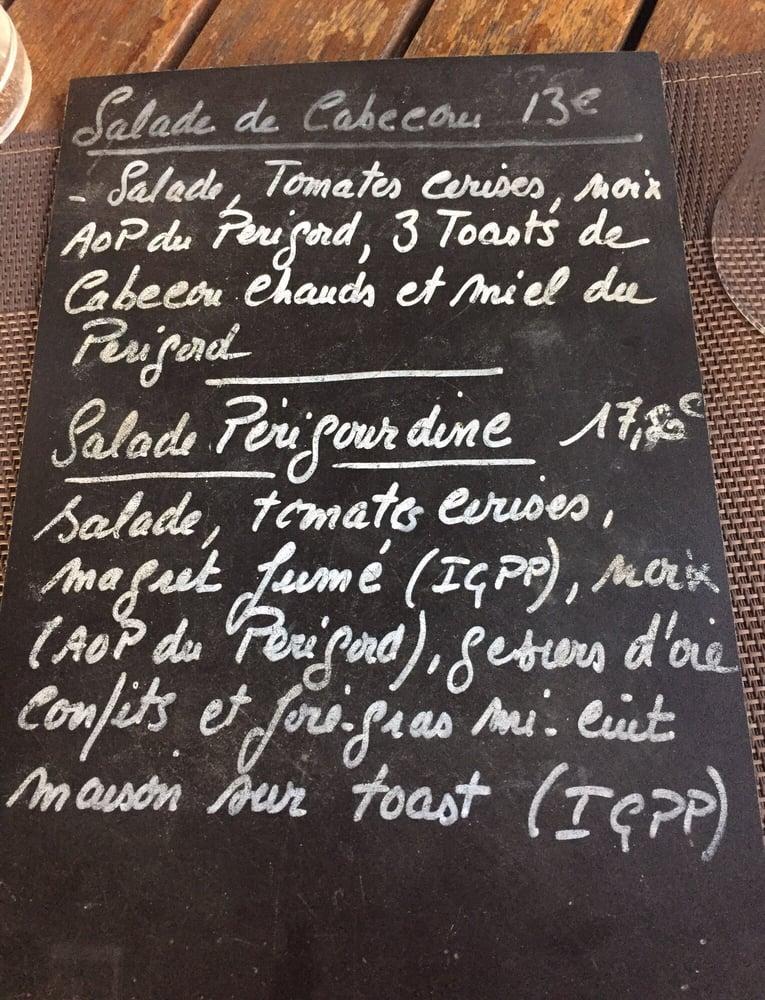 Salade de Cabecou 13€
- Salade, Tomates cerises, noix
AOP du Perigord, 3 Toasts de
Cabecou chauds et miel du
Perigord
Salade Périgourdine
salade, tomates cerises,
magret fumé (IGPP), noix
(AOP du Perigord), gesiers d'oie
confits et foie-gras mi-cuit
maison sur toast (IGPP)